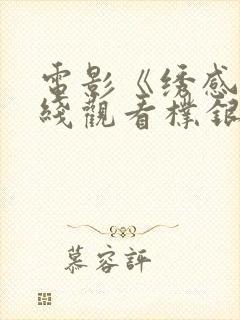 電影《绣感
綫觀看樸銀
慕容評